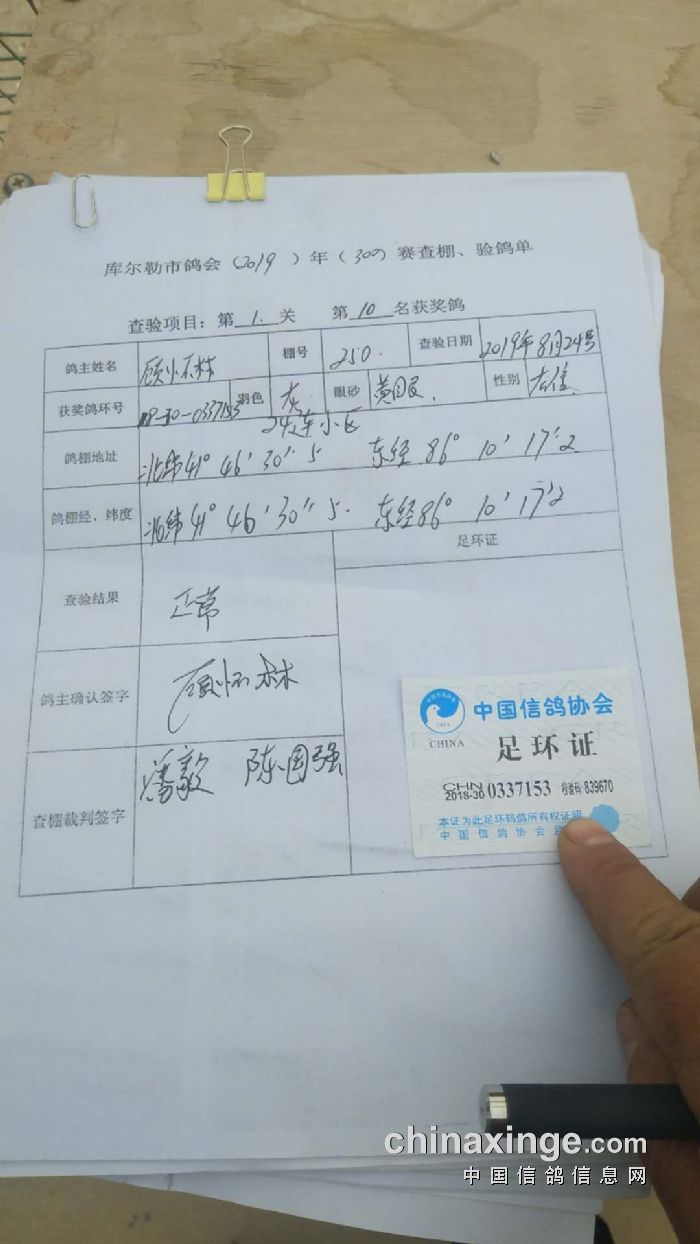 库尔勒市鸽会（2019）年（300）赛查棚、验鸽单
查验项目：第 1. 关 第 10 名获奖鸽
鸽主姓名 棚号 250. 查验日期 2019年8月24号
获奖鸽环号 18-30-0337153 羽色 灰 眼砂 黄眼. 性别 雄
24连小区
鸽棚地址 北纬41° 46′ 30″ 5 东经 86° 10′ 17″2
鸽棚经、纬度 北纬41° 46′ 30″ 5. 东经86° 10′ 17″2
足环证
查验结果 正常
鸽主确认签字
查棚裁判签字 潘毅 陈国强
中国信鸽协会
CHINA
足环证
CHN
2018-30 0337153 检验码:839670
本证为此足环码鸽所有权证明
中国信鸽协会
chinaxinge.com
中国信鸽信息网